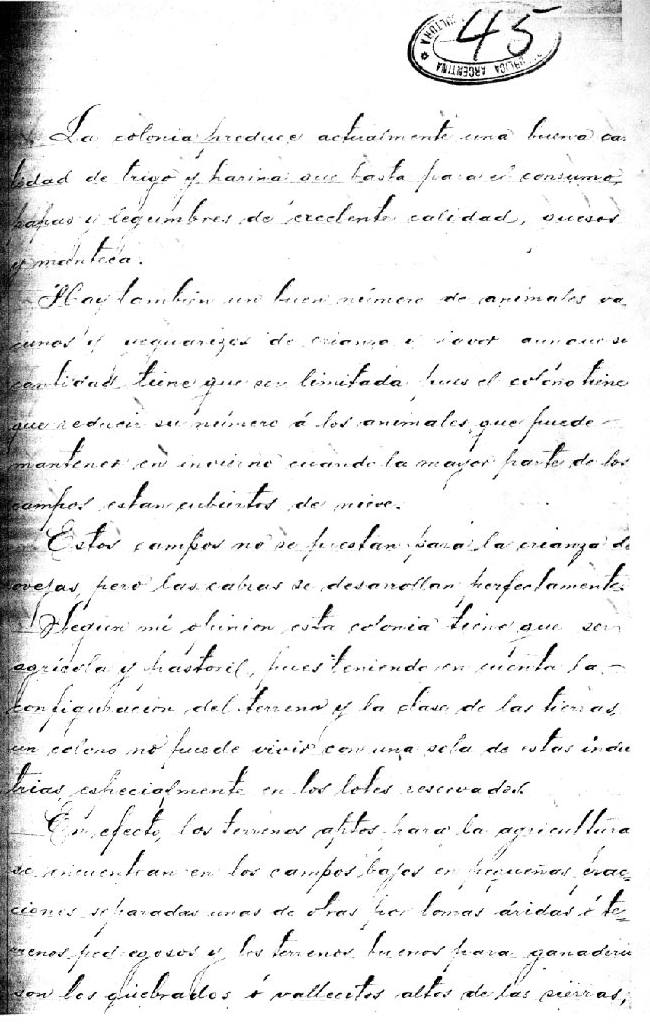 45
CULTURA * REPÚBLICA ARGENTINA *
La colonia produce actualmente una buena ca-
lidad de trigo y harina que basta para el consumo,
papas y legumbres de excelente calidad, quesos
y manteca.
Hay tambien un buen número de animales va-
cunos y yeguarizos de crianza y labor aunque su
cantidad tiene que ser limitada pues el colono tiene
que reducir su número á los animales que puede
mantener en invierno cuando la mayor parte de los
campos estan cubiertos de nieve.
Estos campos no se prestan para la crianza de
ovejas, pero las cabras se desarrollan perfectamente.
Segun mi opinion esta colonia tiene que ser
agrícola y pastoril, pues teniendo en cuenta la
configuracion del terreno y la clase de las tierras
un colono no puede vivir con una sola de estas indus
trias especialmente en los lotes reservados.
En efecto, los terrenos aptos para la agricultura
se encuentran en los campos bajos en pequeñas frac-
ciones separadas unas de otras por lomas áridas ó te-
rrenos pedregosos y los terrenos buenos para ganaderia
son los quebrados ó vallecitos altos de las sierras,